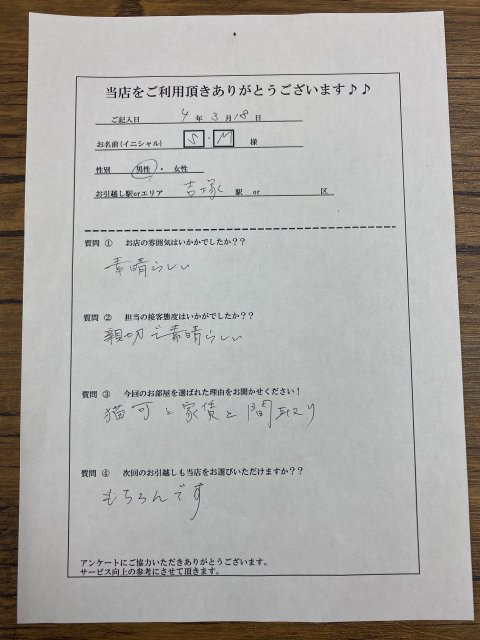 当店をご利用頂きありがとうございます♪♪
ご記入日 4年 3月18日
お名前(イニシャル) S・M 様
性別 男性 ・ 女性
お引越し駅orエリア 吉塚 駅 or 区
質問 ① お店の雰囲気はいかかでしたか??
素晴らしい
質問 ② 担当の接客態度はいかがでしたか??
親切で素晴らしい
質問 ③ 今回のお部屋を選ばれた理由をお聞かせください!
猫可と家賃と間取り
質問 ④ 次回のお引越しも当店をお選びいただけますか??
もちろんです
アンケートにご協力いただきありがとうございます。
サービス向上の参考にさせて頂きます。